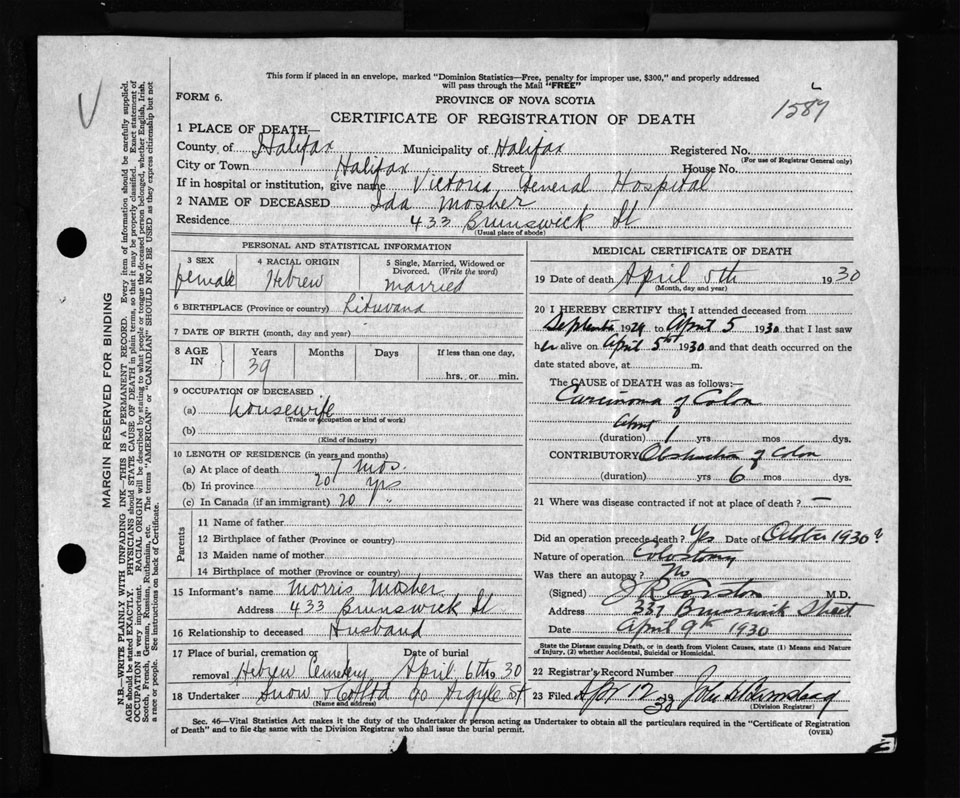 This form if placed in an envelope, marked "Dominion Statistics—Free, penalty for improper use, $300," and properly addressed
will pass through the Mail "FREE"
FORM 6.
PROVINCE OF NOVA SCOTIA
1587
CERTIFICATE OF REGISTRATION OF DEATH
1 PLACE OF DEATH—
County of Halifax Municipality of Halifax Registered No.
(For use of Registrar General only)
City or Town Halifax Street House No.
If in hospital or institution, give name Victoria General Hospital
2 NAME OF DECEASED Ida Mosher
Residence 433 Brunswick St
(Usual place of abode)
PERSONAL AND STATISTICAL INFORMATION
3 SEX 4 RACIAL ORIGIN 5 Single, Married, Widowed or
Divorced. (Write the word)
female Hebrew married
6 BIRTHPLACE (Province or country) Lituvana
7 DATE OF BIRTH (month, day and year)
8 AGE IN Years Months Days If less than one day,
39 hrs. or min.
9 OCCUPATION OF DECEASED
(a) housewife
(Trade or occupation or kind of work)
(b)
(Kind of industry)
10 LENGTH OF RESIDENCE (in years and months)
(a) At place of death 7 mos.
(b) In province 20 yrs
(c) In Canada (if an immigrant) 20 "
Parents
11 Name of father
12 Birthplace of father (Province or country)
13 Maiden name of mother
14 Birthplace of mother (Province or country)
15 Informant's name Morris Mosher
Address 433 Brunswick St
16 Relationship to deceased Husband
17 Place of burial, cremation or removal Date of burial
Hebrew Cemetery April 6th 1930
18 Undertaker Snow & Co Ltd 90 Argyle St
(Name and address)
MEDICAL CERTIFICATE OF DEATH
19 Date of death April 5th 1930
(Month, day and year)
20 I HEREBY CERTIFY that I attended deceased from
September 1929 to April 5 1930 that I last saw
her alive on April 5th 1930 and that death occurred on the
date stated above, at m.
The CAUSE OF DEATH was as follows:—
Carcinoma of Colon
about
(duration) 1 yrs mos dys.
CONTRIBUTORY Obstruction of Colon
(duration) yrs 6 mos dys.
21 Where was disease contracted if not at place of death? —
Did an operation precede death? Yes Date of October 1930?
Nature of operation Colostomy
Was there an autopsy? No
(Signed) J R Corston M.D.
Address 337 Brunswick Street
Date April 9th 1930
State the Disease causing Death, or in death from Violent Causes, state (1) Means and Nature
of Injury, (2) whether Accidental, Suicidal or Homicidal.
22 Registrar's Record Number
23 Filed Apr 12 1930
(Division Registrar)
Sec. 46—Vital Statistics Act makes it the duty of the Undertaker or person acting as Undertaker to obtain all the particulars required in the "Certificate of Registration
of Death" and to file the same with the Division Registrar who shall issue the burial permit.
(OVER)
MARGIN RESERVED FOR BINDING
N.B.—WRITE PLAINLY WITH UNFADING INK—THIS IS A PERMANENT RECORD. Every item of information should be carefully supplied.
AGE should be stated EXACTLY. PHYSICIANS should STATE CAUSE OF DEATH in plain terms, so that it may be properly classified. Exact statement of
OCCUPATION is very important. RACIAL ORIGIN will be described by stating to what people or tongue the deceased person belonged, whether English, Irish,
Scotch, French, German, Russian, Ruthenian, etc. The terms "AMERICAN" or "CANADIAN" SHOULD NOT BE USED as they express citizenship but not
a race or people. See instructions on back of Certificate.